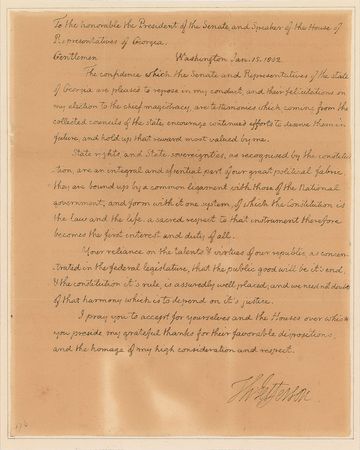 To the honorable the President of the Senate and Speaker of the House of
Representatives of Georgia.
Gentlemen Washington Jan. 15. 1802
The confidence which the Senate and Representatives of the state
of Georgia are pleased to repose in my conduct, and their felicitations on
my election to the chief magistracy, are testimonies which coming from the
collected councils of the state, encourage continued efforts to deserve them in
future, and hold up that reward most valued by me.
State rights, and State-sovereignties, as recognised by the constitu-
-tion, are an integral and essential part of our great political fabric
they are bound up by a common ligament with those of the National
government, and form with it one system, of which the Constitution is
the law and the life. a sacred respect to that instrument therefore
becomes the first interest and duty of all.
Your reliance on the talents & virtues of our republic, as concen-
trated in the federal legislature, that the public good will be it's end,
& the constitution it's rule, is assuredly well placed; and we need not doubt
of that harmony which is to depend on it's justice.
I pray you to accept for yourselves and the Houses over which
you preside my grateful thanks for their favorable dispositions
and the homage of my high consideration and respect.
Th: Jefferson